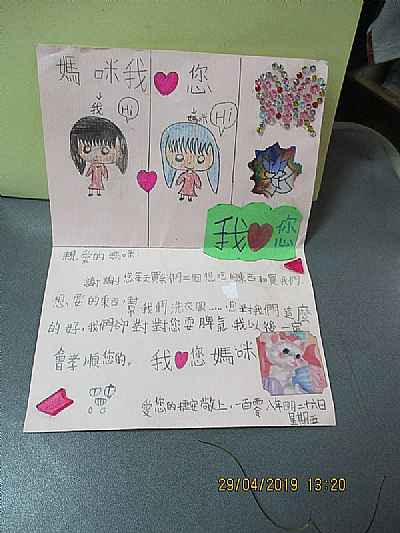 媽咪我您
我
Hi
媽咪
Hi
我您
親愛的媽咪
謝謝您每天買我們三個想吃的東西和買我們
想要的東西,幫我們洗衣服……您對我們這麼
的好,我們卻對您耍脾氣我以後一定
會孝順您的。我您媽咪
愛您的 敬上,一百零八年 月二十六日
星期五
29/04/2019 13:20